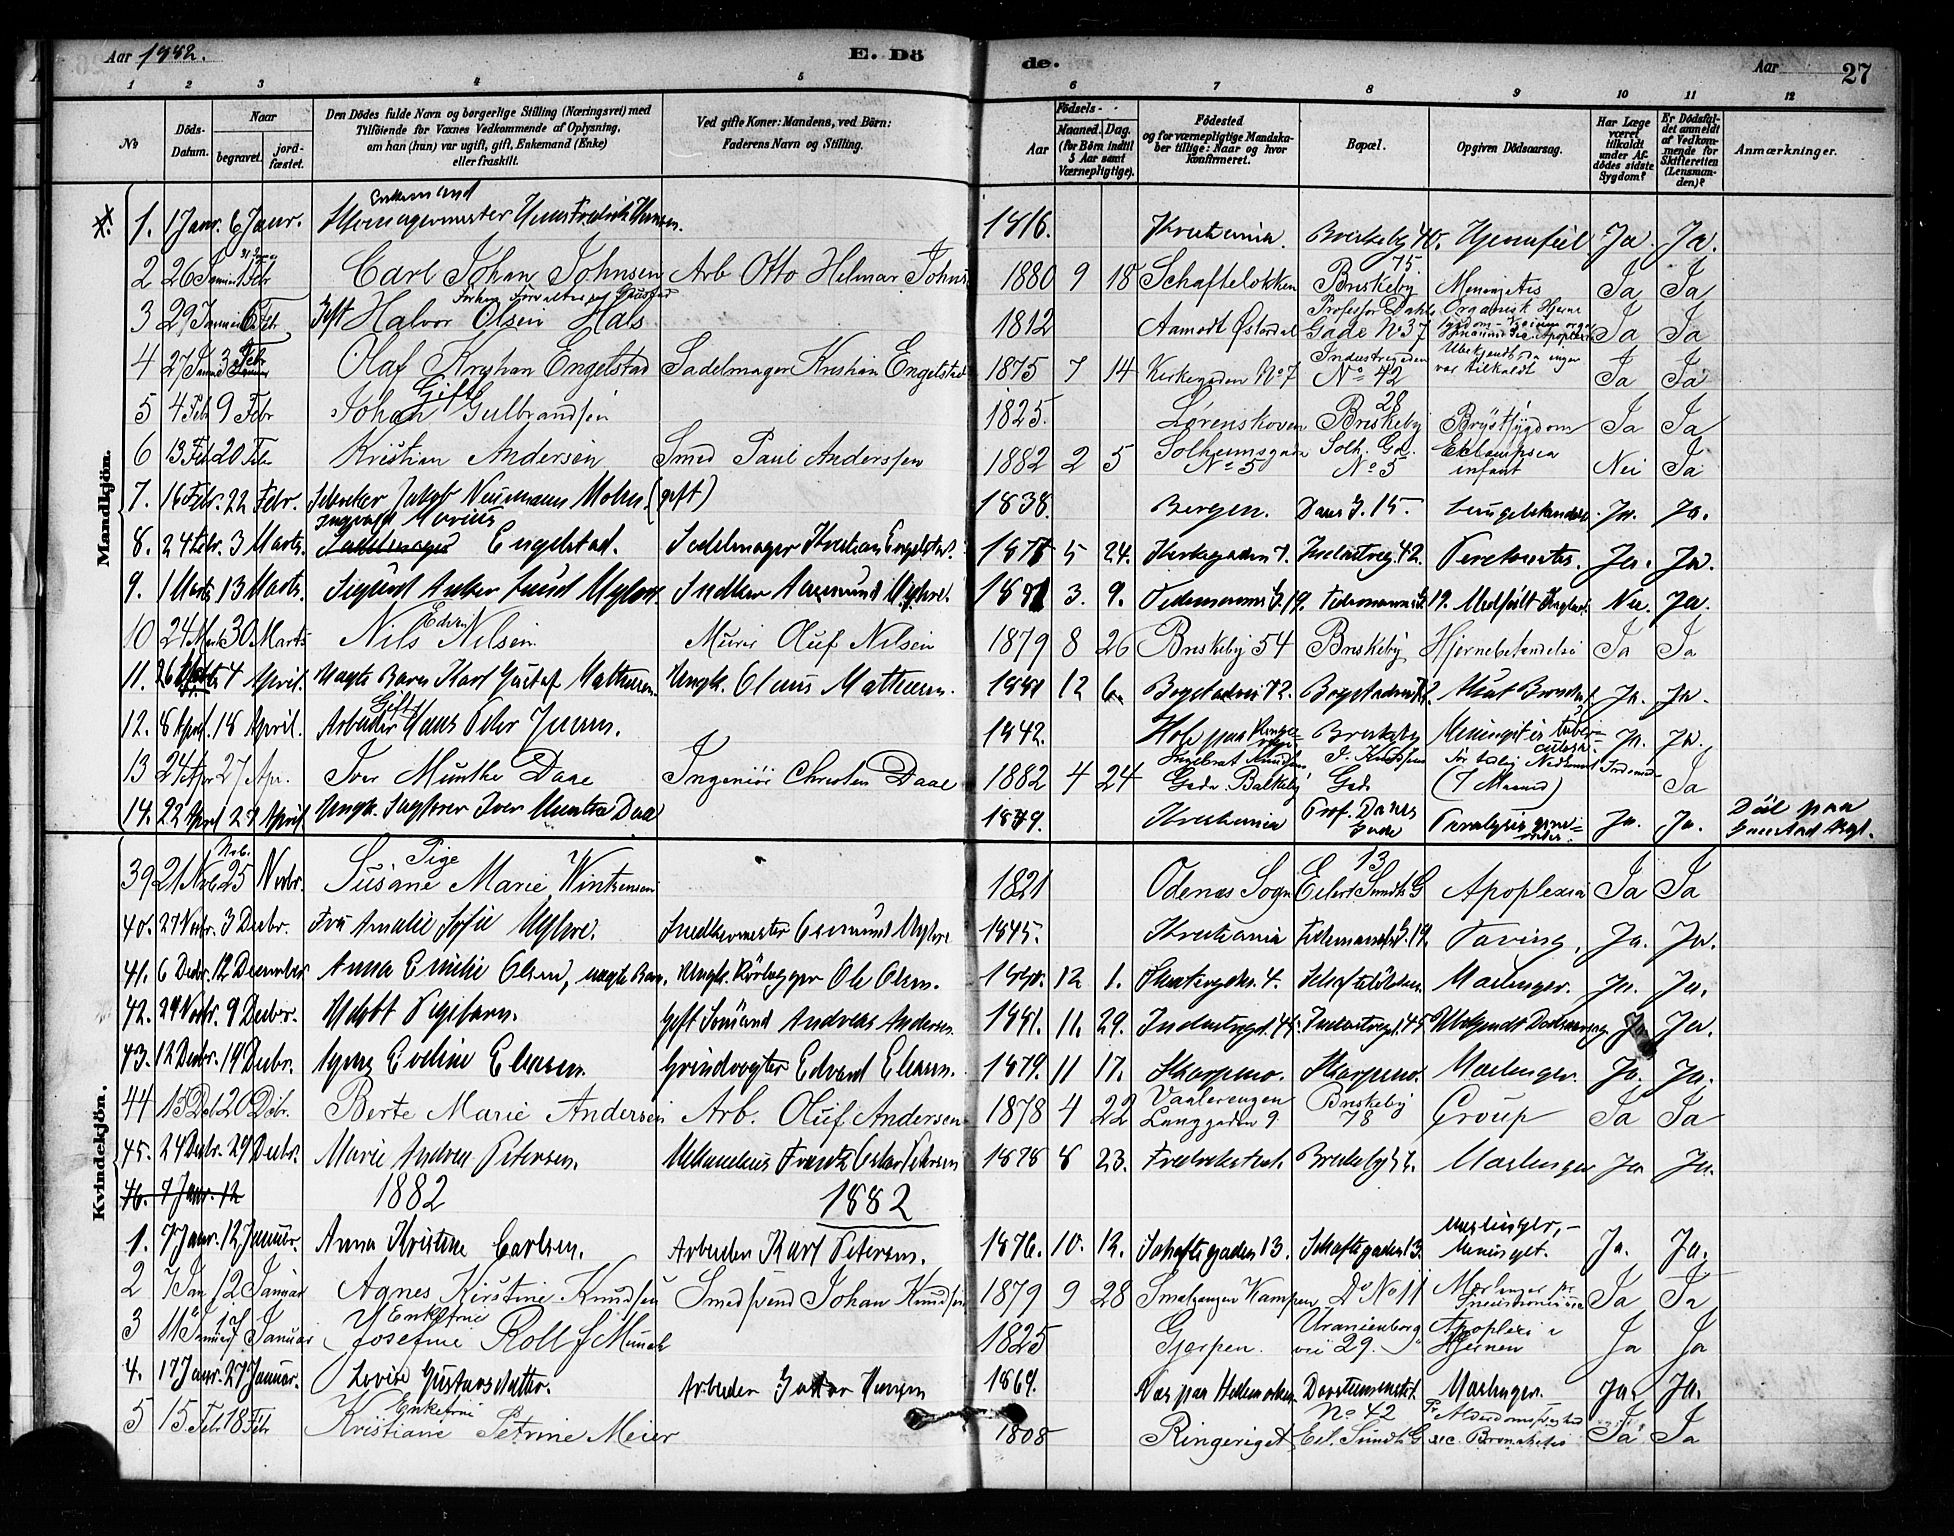 Aar 1882.
E. Döde.
Aar 27
1 2 3 4 5 6 7 8 9 10 11 12
No
Döds-Datum.
Naar
begravet.
jordfæstet.
Den Dödes fulde Navn og borgerlige Stilling (Næringsvei) med Tilföiende for Voxnes Vedkommende af Oplysning, om han (hun) var ugift, gift, Enkemand (Enke) eller fraskilt.
Ved gifte Koner: Mandens, ved Börn: Faderens Navn og Stilling.
Födsels-
Aar
Maaned. Dag.
(for Börn indtil 5 Aar samt Værnepligtige).
Födested og for værnepligtige Mandskaber tillige: Naar og hvor Konfirmeret.
Bopæl.
Opgiven Dödsaarsag.
Har Læge været tilkaldt under Afdödes sidste Sygdom?
Er Dödsfaldet anmeldt af Vedkommende for Skifteretten (Lensmanden)?
Anmærkninger.
Mandkjön.
1. 1 Janr. 6 Janr. Enkemand Hans Fredrik Hansen. 1816. Kristiania. Briskeby 40. Hjertefeil Ja. Ja.
2 26 Januar Febr Carl Johan Johnsen Arb Otto Helmar Johns 1880 9 18 Schafteløkken Briskeby 75. Ja Ja
3 29 Januar 6 Febr Gift Halvor Olsen Hals 1812 Aamodt Østerdal Professor Dahls Gade No 37 Organisk Hjerne Ja Ja
4 27 Janu 3 Febr Olaf Kristian Engelstad Sadelmager Kristian Engelstad 1875 7 14 Kirkegaden No 7 Industrigaden No 42 Ubekjendt da ingen var tilkaldt Ja Ja
5 4 Feb 9 Febr Gift Johan Gulbrandsen 1825. Lørenskoven Briskeby 28 Brystsygdom Ja Ja
6 13 Feb 20 Febr Kristian Andersen Smed Paul Anderssen 1882 2 5 Solheimsgaden No 5 Solh. Gd. No 5 Eklampsia infant Nei Ja
7. 16 Febr. 22 Febr. Jakob Neumann Mohn (gift) 1838. Bergen. Daas G. 15. Ja. Ja.
8. 24 Febr. 3 Marts. Ingvald Marius Engelstad. Sadelmager Kristian Engelstad. 5 24. Kirkegaden 7. Industrig. 42. Ja. Ja.
9. 1 Marts 13 Marts. Sigurd Anker Lund Myhre. Snedker Myhre. 3. 9. Tidemannsg. 19. Tidemannsg. 19. Nei. Ja.
10 24 Marts 30 Marts Nils Edvin Nilsen Murer Oluf Nilsen 1879 8 26 Briskeby 54 Briskeby Hjernebetændelse Ja Ja
11. 26 Marts 4 April. Uægte Barn Karl Gustaf Mathisen. Ungk. Claus Mathisen. 1881 12 6. Bogstadvei 72. Bogstadvei 72. Ja. Ja.
12. 8 April. 18 April. Gift Arbeider Hans Peter Jensen. 1842. Hole paa Ringerige Briskeby Meningitis tuberculosa. Ja. Ja.
13 24 Apr 27 Apr. Iver Munthe Daae Ingeniör Christen Daae 1882 4 24 Ingebret Knudsens Gade Balkeby I. Knudsens Gade För tidlig Nedkomst (7 Maaned) Jordemor Ja
14. 22 April 27 April Ungk. Iver Munthe Daae 1849. Kristiania Prof. Dahls Gade Paralysis generalis Ja. Ja. Död paa Gaustad Asyl.
Kvindekjön.
39 21 Nov 25 Nov. Novbr. Pige Susane Marie Wintzensen 1821 Odenæs Sogn Eilert Sundts G 13 Apoplexia Ja Ja
40. 27 Novbr. 3 Decbr. Fru Amalie Sofie Myhre. Snedkermester Myhre 1845. Kristiania Tidemandsg. 19. Tæring. Ja. Ja.
41. 6 Decbr. 12 December Anna Emilie Olsen, uægte Barn. Ungk. Rörlægger Ole Olsen. 1880. 12 1. Mæslinger. Ja. Ja.
42. 29 Novbr. 9 Decbr. Udøbt Pigebarn. Gift Sömand Andreas Andersen 1881. 11. 29. Industrigd. 45. Industrigd. 45 Ubekjendt Dødsaarsag Ja Ja.
43. 12 Decbr. 19 Decbr. Agnes Eveline Eliasen. Grindvogter Edvard Eliasen. 1879. 11 17. Skarpsno. Skarpsno. Mæslinger. Ja. Ja.
44 15 Dec 20 Debr. Berte Marie Andersen Arb. Oluf Andersen 1878 4 22 Vaalerengen Langgaden 9 Briskeby 78 Croup Ja Ja
45. 24 Decbr. 29 Decbr. Marie Andrea Petersen. Mekanikus Frantz Oskar Petersen 1878 8 23. Fredrikstad. Briskeby 57. Mæslinger Ja. Ja.
46. 7 Janr. 12 1882 1882
1. 7 Janr. 12 Januar. Anna Kristine Carlsen. Arbeider Karl Petersen. 1876. 10. 12. Schaftsgaden 13. Schaftsgaden 13. Mæslinger, - Meninget. Ja. Ja.
2 7 Jan 12 Januar Agnes Kirstine Knudsen Smedsvend Johan Knudsen 1879 9 28 Smalgangen Kampen Do No 11 Mæslinger Ja Ja
3 11 Januar Januar Enkefrue Josefine Roll f Munch 1825 Gjerpen. Uranienborg vei 29. Apoplexi i Hjernen Ja Ja
4. 17 Janr. 27 Januar. Lovise Gustavsdatter. Arbeider Gustav Hansen 1869. Næs paa Hedemarken Mæslinger. Ja. Ja.
5 15 Febr 18 Febr Enkefrue Kristiane Petrine Meier 1808 Ringeriget No 42 Eil. Sundts G Alderdomssvaghed Bronchitis Ja Ja